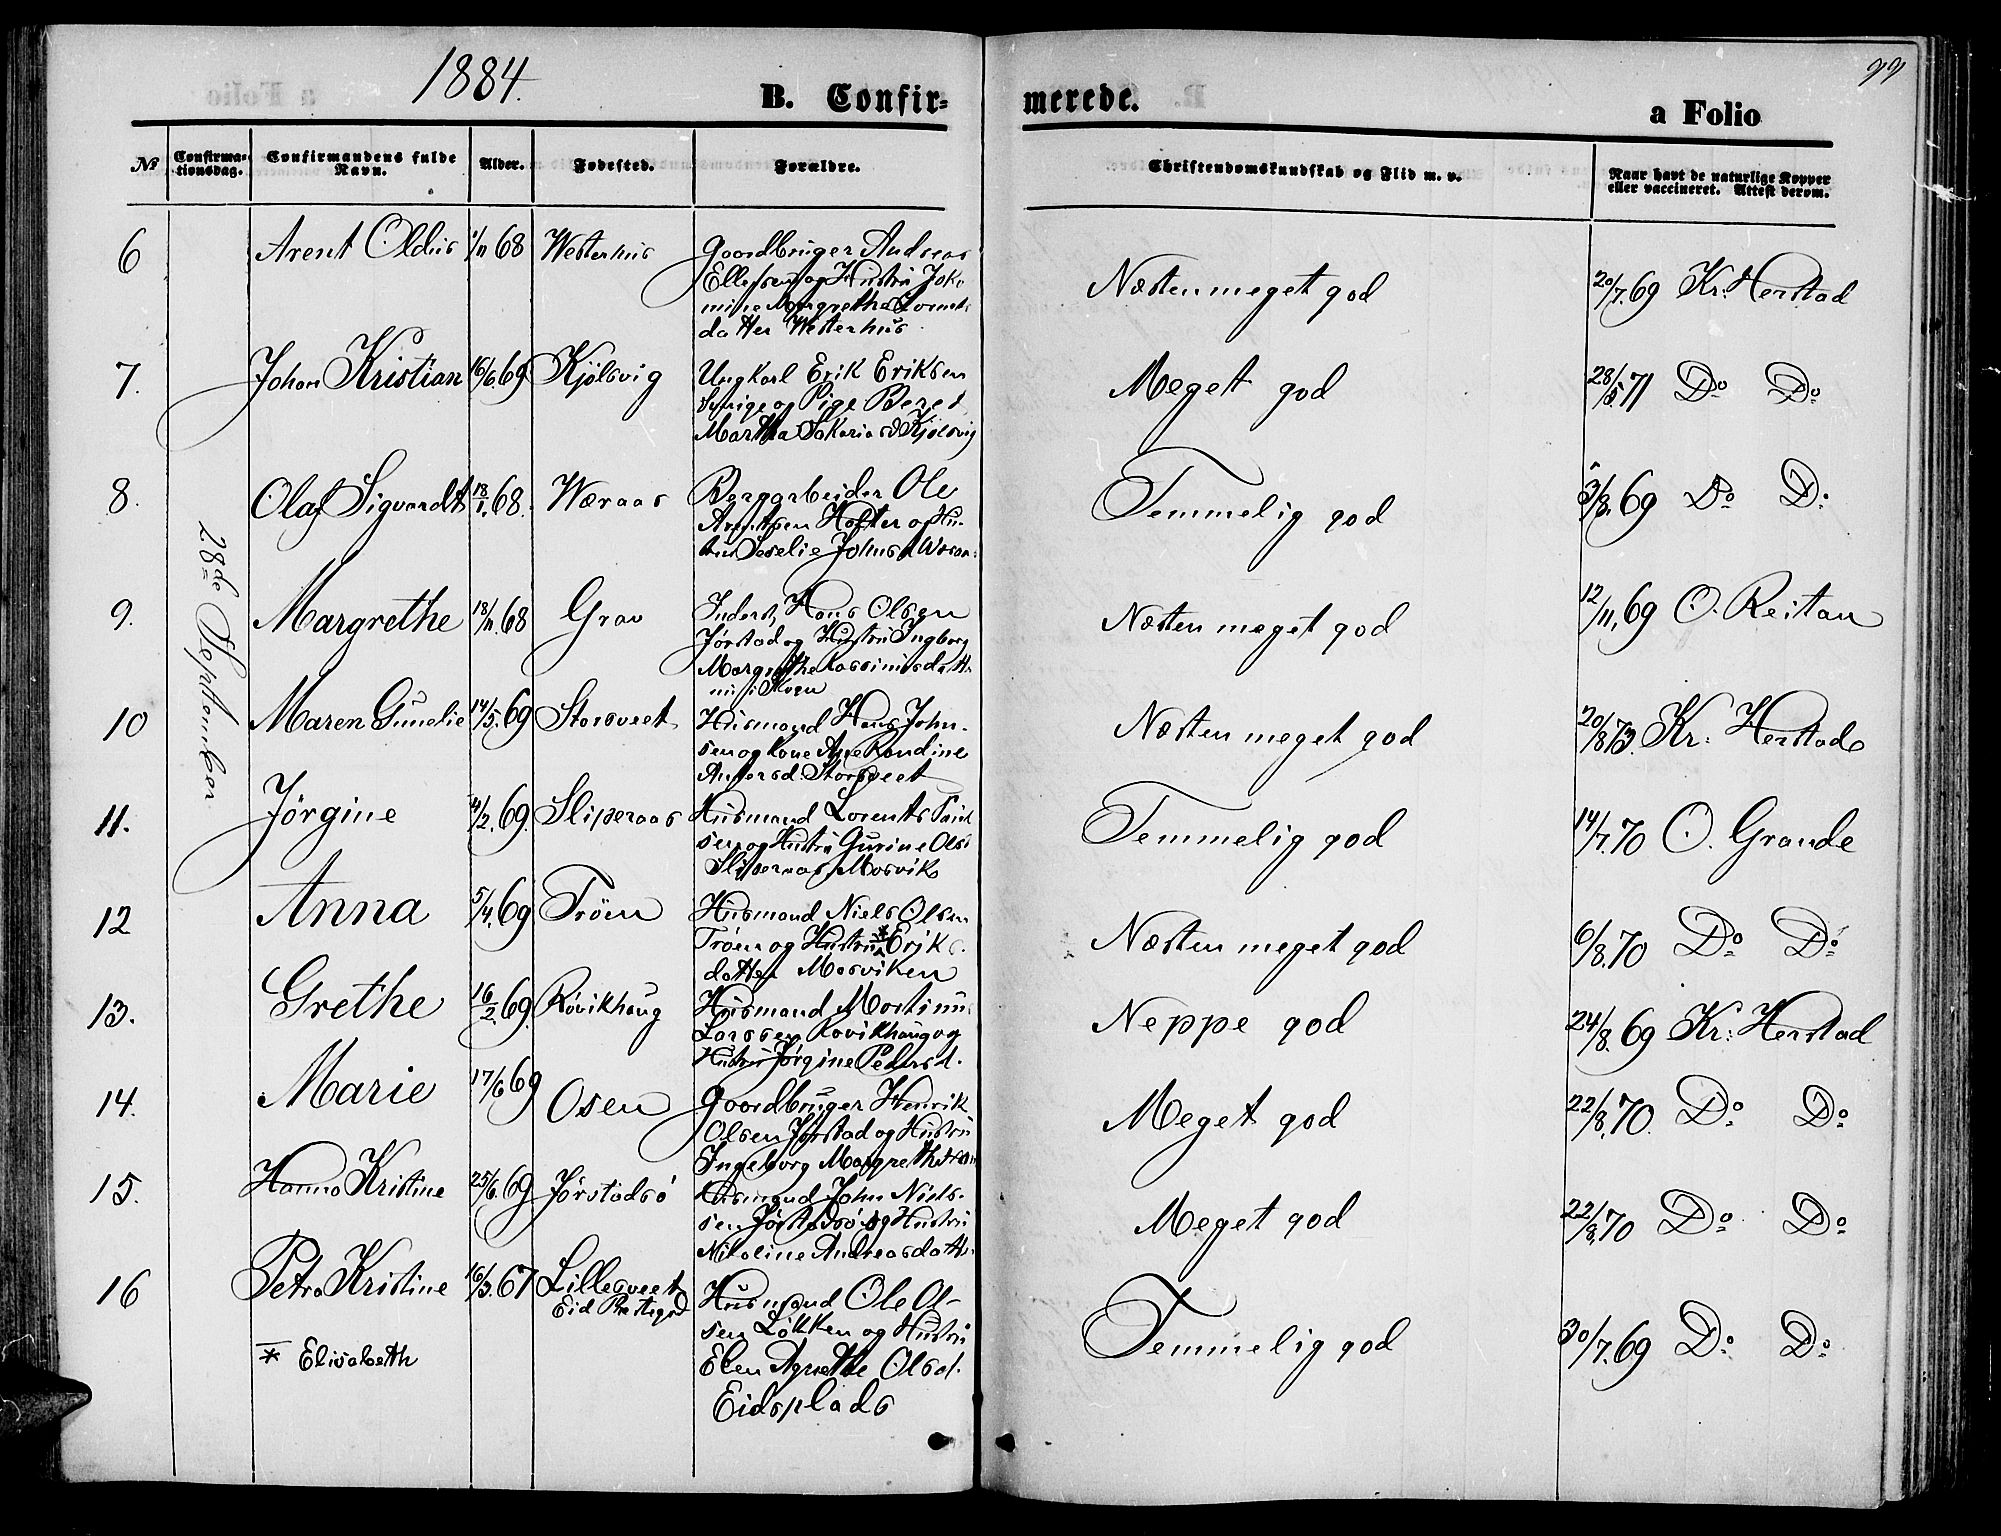 1884.
99
B. Confir-
merede.
a Folio
№
Confirma-
tionsdag.
Confirmandens fulde
Navn.
Alder.
Fødested.
Forældre.
Christendomskundskab og Flid m. v.
Naar havt de naturlige Kopper
eller vaccineret. Attest derom.
28de September
6
Arent Oldus
1/11 68
Westerhus
Gaardbruger Andreas
Ellefsen og Hustru Jako-
mine Margrethe Lornts
datter Westerhus
Næsten meget god
20/7.69 Kr: Herstad
7.
Johan Kristian
16/6 69
Kjølsvig
Ungkarl Erik Eriksen
Sverige og Pige Beret
Martha Sakariasd Kjølsvig
Meget god
28/5 71 Do Do
8.
Olaf Sigvardt
18/1. 68.
Wæraas
Bergarbeider Ole
Arntsen Holter og Hu-
stru Seselie Johnsd Wæraas
Temmelig god
3/8. 69 Do Do
9.
Margrethe
18/11. 68
Grav
Inderst Hans Olsen
Jørstad og Hustru Ingborg
Margrethe Rassimusdatt.
Næsten meget god
12/11, 69 O. Reitan
10
Maren Gunelie
14/5. 69
Storsveet
Husmand Hans John-
sen og Kone Ane Randine
Andersd. Storsveet
Næsten meget god
20/8 73. Kr: Herstad
11.
Jørgine
4/2. 69.
Sliperaas
Husmand Lorents Paul
sen og Hustru Gurine Ols
Sliperaas, Mosvik
Temmelig god
14/7. 70 O. Grande
12
Anna
5/4. 69
Trøen
Husmand Niels Olsen
Trøen og Hustru * Eriks
datter Mosviken
Næsten meget god
6/8. 70 Do Do
13.
Grethe
16/2. 69.
Røvikhaug
Husmand Mortinus
Larssen Rovikhaug og
Hustru Jørgine Pedersd.
Neppe god
24/8. 69 Kr: Herstad
14.
Marie
17/6 69
Osen
Gaardbruger Henrik
Olsen Jørstad og Hustru
Ingeborg Margrethe
Meget god
22/8. 70. Do Do
15.
Hanna Kristine
25/6. 69
Jørstadsø
Husmand John Niels-
sen Jørstadsø og Hustru
Nikoline Andreasdatt.
Meget god
22/8. 70 Do Do
16
Petra Kristine
16/3. 67
Lillesveet
Eid Prestegd
Husmand Ole Ol-
sen Løkken og Hustru
Elen Agnethe Olsd.
Eidsplads
Temmelig god
30/7. 69 Do Do
* Elisabeth